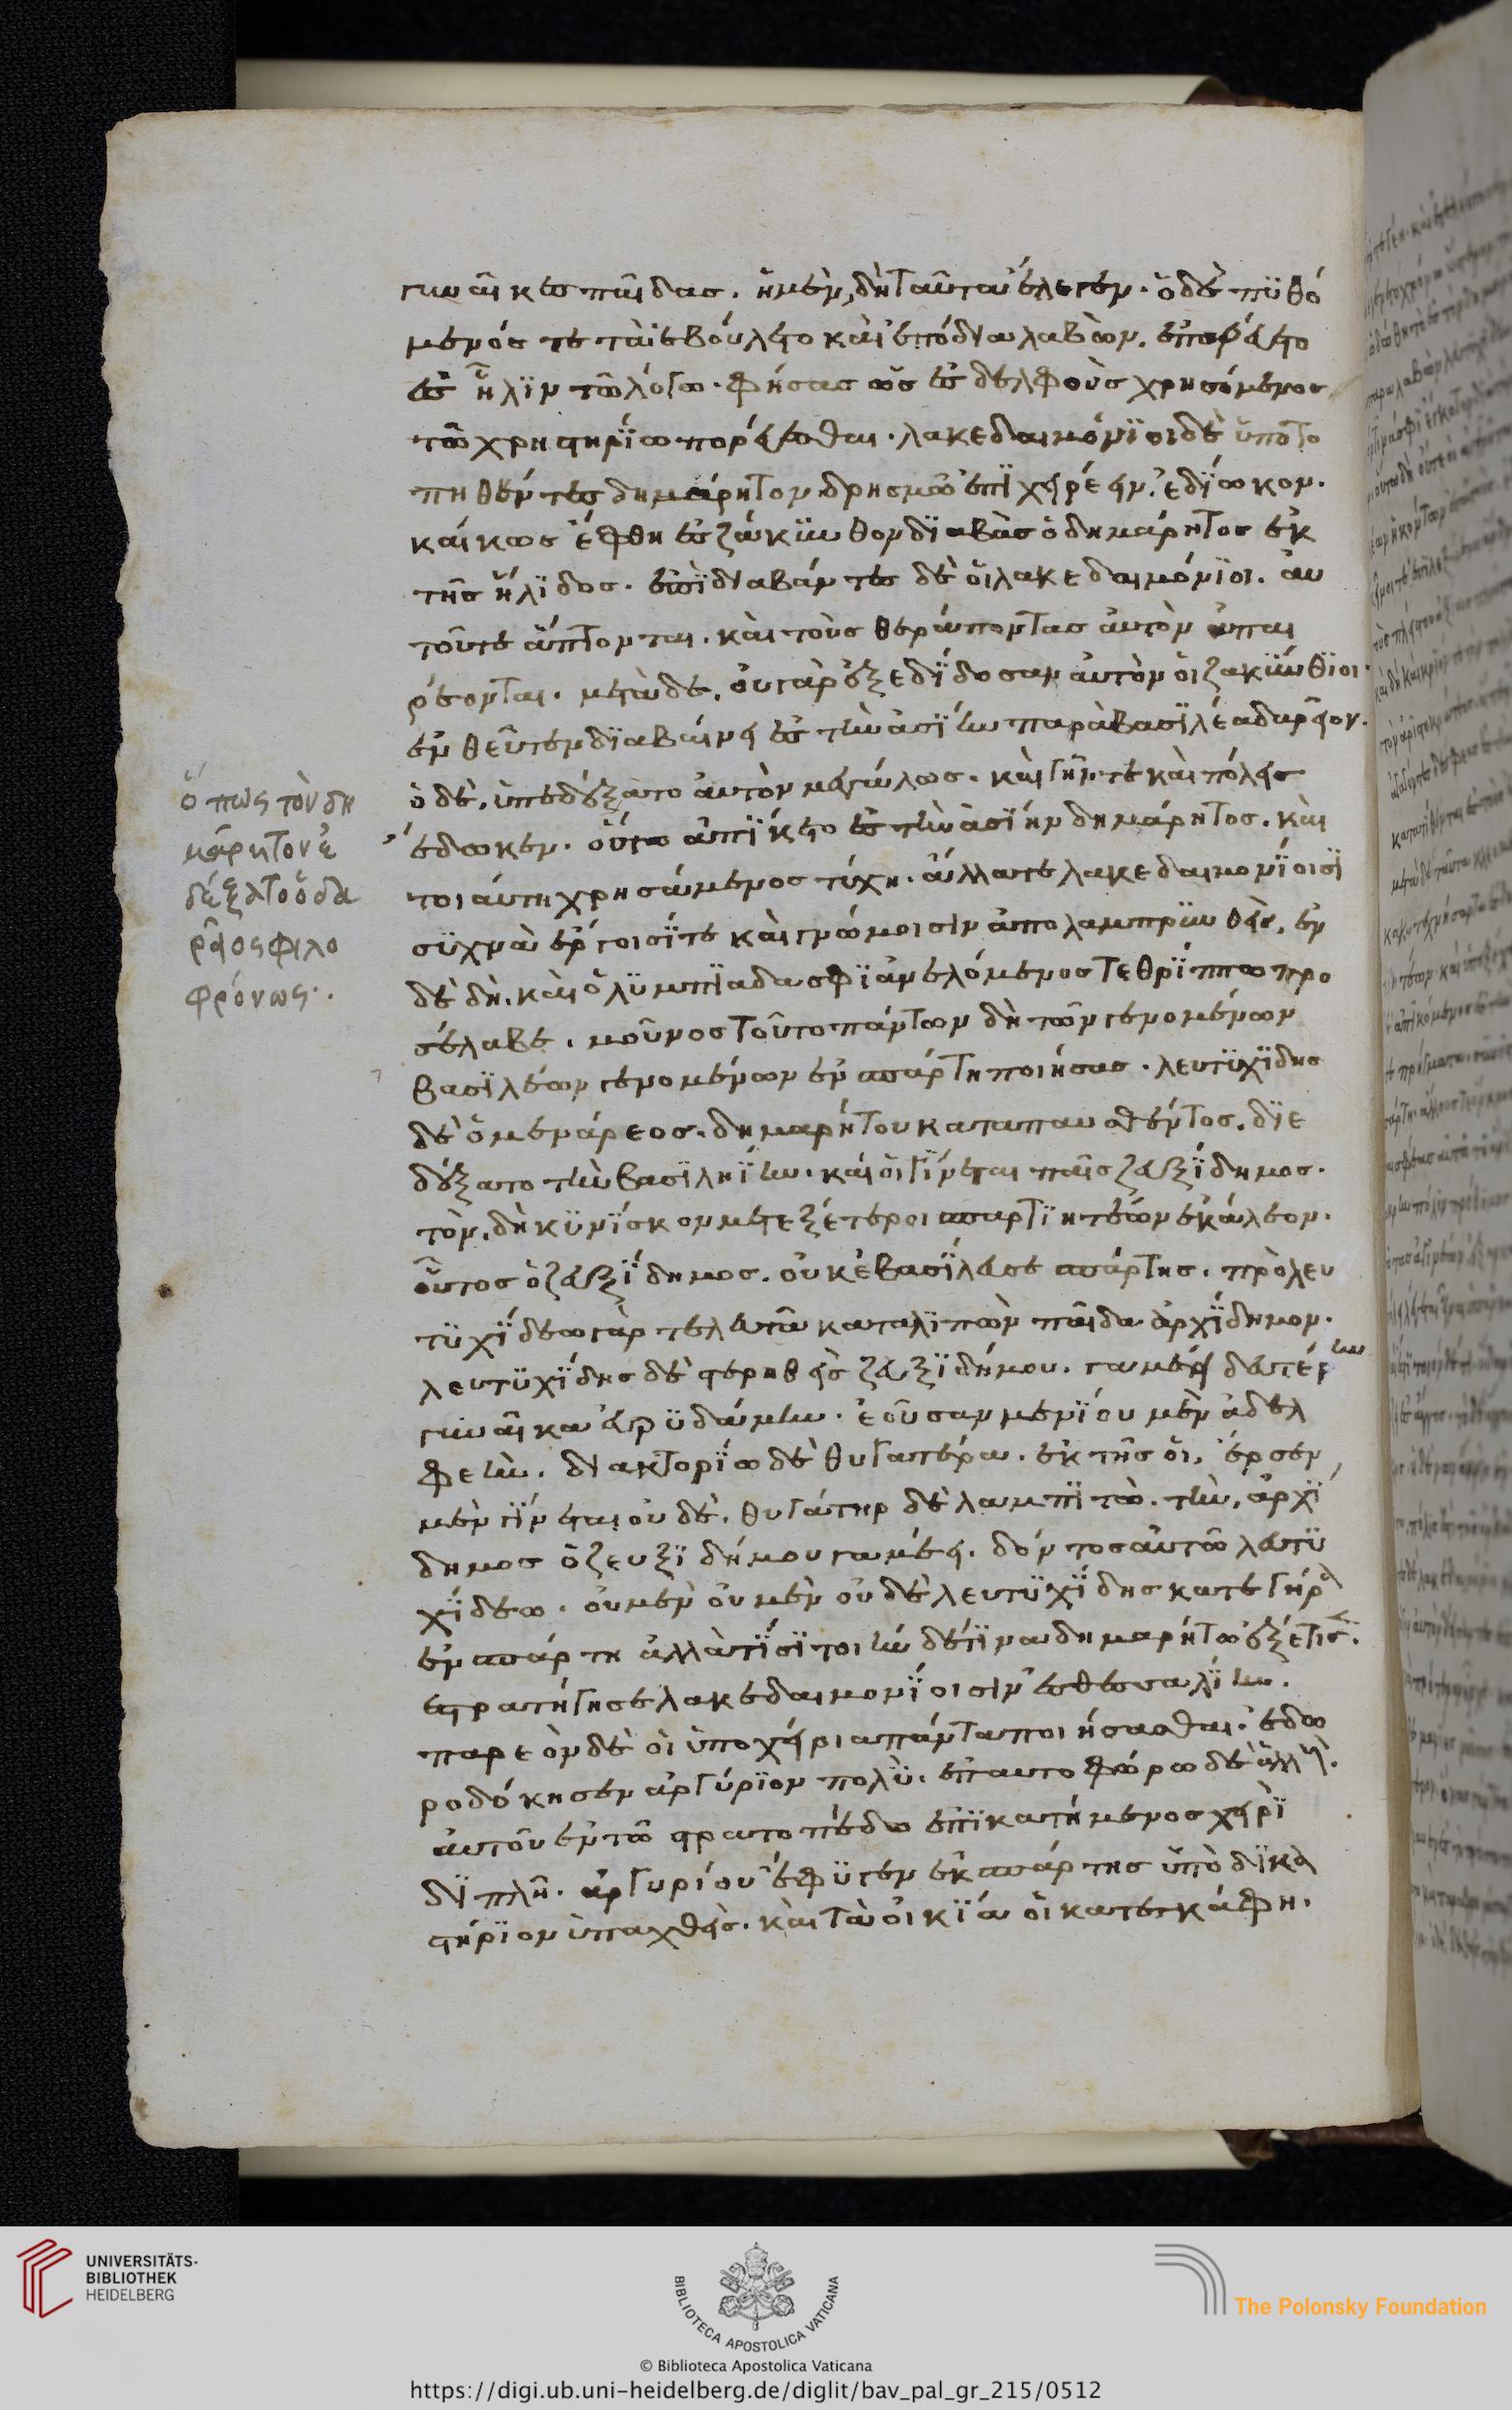 γυναῖκες παῖδας. ἡ μὲν δὴ ταῦτα ἔλεγεν. ὁ δὲ πυθό
μενός τε τὰ ἐβούλετο καὶ ἐπόδια λαβὼν. ἐπορεύετο
ἐς ἦλιν τῶ λόγω. φήσας ὡς ἐς δελφοὺς χρησόμενος
τῶ χρηστηρίω πορεύεσθαι. λακεδαιμόνιοι δὲ ὑποτο
πηθέντες δημάρητον δρησμῶ ἐπιχειρέειν. ἐδίωκον.
καί κως ἔφθη ἐς ζάκυνθον διαβὰς ὁ δημάρητος ἐκ
τῆς ἤλιδος. ἐπιδιαβάντες δὲ οἱ λακεδαιμόνιοι. αὐ
τοῦτε ἅπτονται. καὶ τοὺς θεράποντας αὐτὸν ἀπαι
ρέονται. μετὰ δὲ, οὐ γὰρ ἐξεδίδοσαν αὐτὸν οἱ ζακύνθιοι.
ἐνθεῦτεν διαβαίνει ἐς τὴν ἀσίην παρὰ βασιλέα δαρεῖον.
ὁ δὲ, ὑπεδέξατο αὐτὸν μεγάλως. καὶ γῆν τε καὶ πόλεις
ἔδωκεν. οὕτω ἀπίκετο ἐς τὴν ἀσίην δημάρητος. καὶ
τοιαύτη χρησάμενος τύχη. ἄλλα τε λακεδαιμονίοισι
συχνὰ ἔργοισί τε καὶ γνώμοισιν ἀπολαμπρυνθεὶς, ἐν
δὲ δὴ. καὶ ὀλυμπιάδα σφι ἀνελόμενος τεθρίππω προ
σέλαβε. μοῦνος τοῦτο πάντων δὴ τῶν γενομένων
βασιλέων γενομένων ἐν σπάρτη ποιήσας. λευτυχίδης
δὲ ὁ μενάρεος. δημαρήτου καταπαυσθέντος. διε
δέξατο τὴν βασιληίην. καί οἱ γίνεται παῖς ζευξίδημος.
τὸν, δὴ κυνίσκον μετεξέτεροι σπαρτιητέων ἐκάλεον.
οὗτος ὁ ζευξίδημος. οὐκ ἐβασίλευσε σπάρτης. πρὸ λευ
τυχίδεω γὰρ τελευτᾶ καταλιπὼν παῖδα ἀρχίδημον.
λευτυχίδης δὲ στερηθεὶς ζευξιδήμου. γαμέει δευτέρην
γυναῖκα εὐρυδάμην. ἐοῦσαν μενίου μὲν ἀδελ
φεὴν. διακτορίω δὲ θυγατέρα. ἐκ τῆς οἱ, ἔρσεν
μὲν γίνεται οὐδὲ. θυγάτηρ δὲ λαμπιτὼ. τὴν, ἀρχί
δημος ὁ ζευξιδήμου γαμέει. δόντος αὐτῶ λευτυ
χίδεω. οὐ μὲν οὐ μὲν οὐδὲ λευτυχίδης κατεγήρα
ἐν σπάρτη ἀλλὰ τίσι τοιήνδέ τινα δημαρήτω ἐξέτισε.
ἐστρατήγησε λακεδαιμονίοισιν ἐς θεσσαλίην.
παρεὸν δὲ οἱ ὑποχείρια πάντα ποιήσασθαι. ἐδω
ροδόκησεν ἀργύριον πολὺ. ἐπαυτοφώρω δὲ ἁλλ.
αὐτοῦ ἐν τῶ στρατοπέδω ἐπικατήμενος χειρὶ
διπλῆ. ἀργυρίου ἔφυγεν ἐκ σπάρτης ὑπὸ δικα
στήριον ὑπαχθεὶς. καὶ τὰ οἰκία οἱ κατεσκάφη.
ὅπως τὸν δη
μάρητον ἐ
δέξατο ὁ δα
ρεῖος φιλο
φρόνως.
UNIVERSITÄTS-
BIBLIOTHEK
HEIDELBERG
BIBLIOTECA APOSTOLICA VATICANA
© Biblioteca Apostolica Vaticana
The Polonsky Foundation
https://digi.ub.uni-heidelberg.de/diglit/bav_pal_gr_215/0512